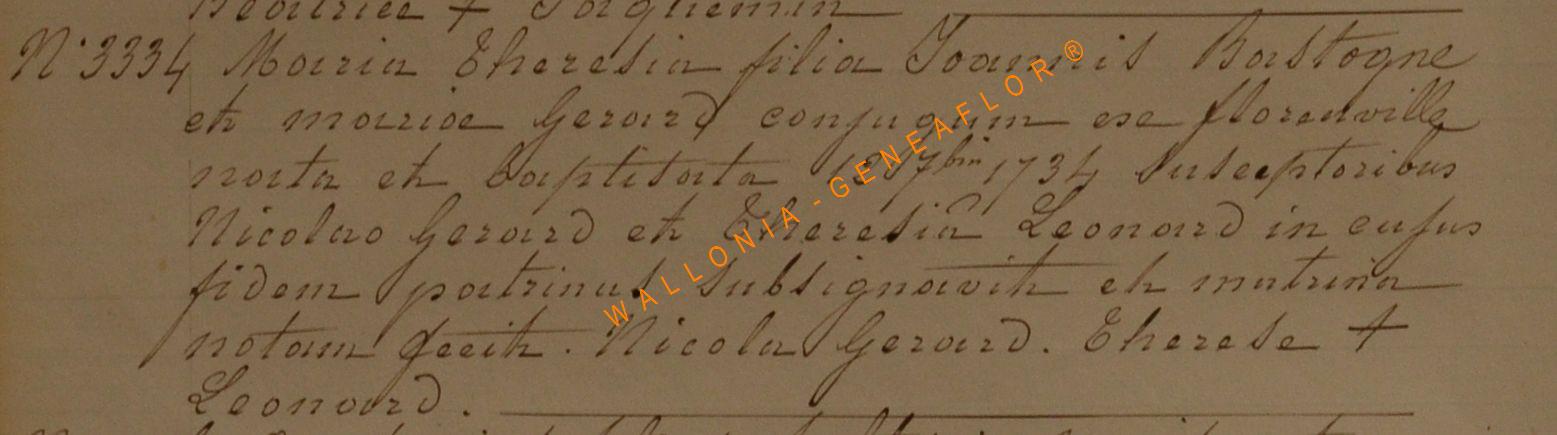 Beatrice + Jacquemin
N° 3334 Maria Theresia filia Joannis Bastogne
et mariae Gerard conjugum ex florenville
nata et baptisata 7bris 1734 susceptoribus
Nicolao Gerard et Theresia Leonard in cujus
fidem patrinus subsignavit et matrina
notam fecit. Nicola Gerard. Therese +
Leonard.
WALLONIA-GENEAFLOR®